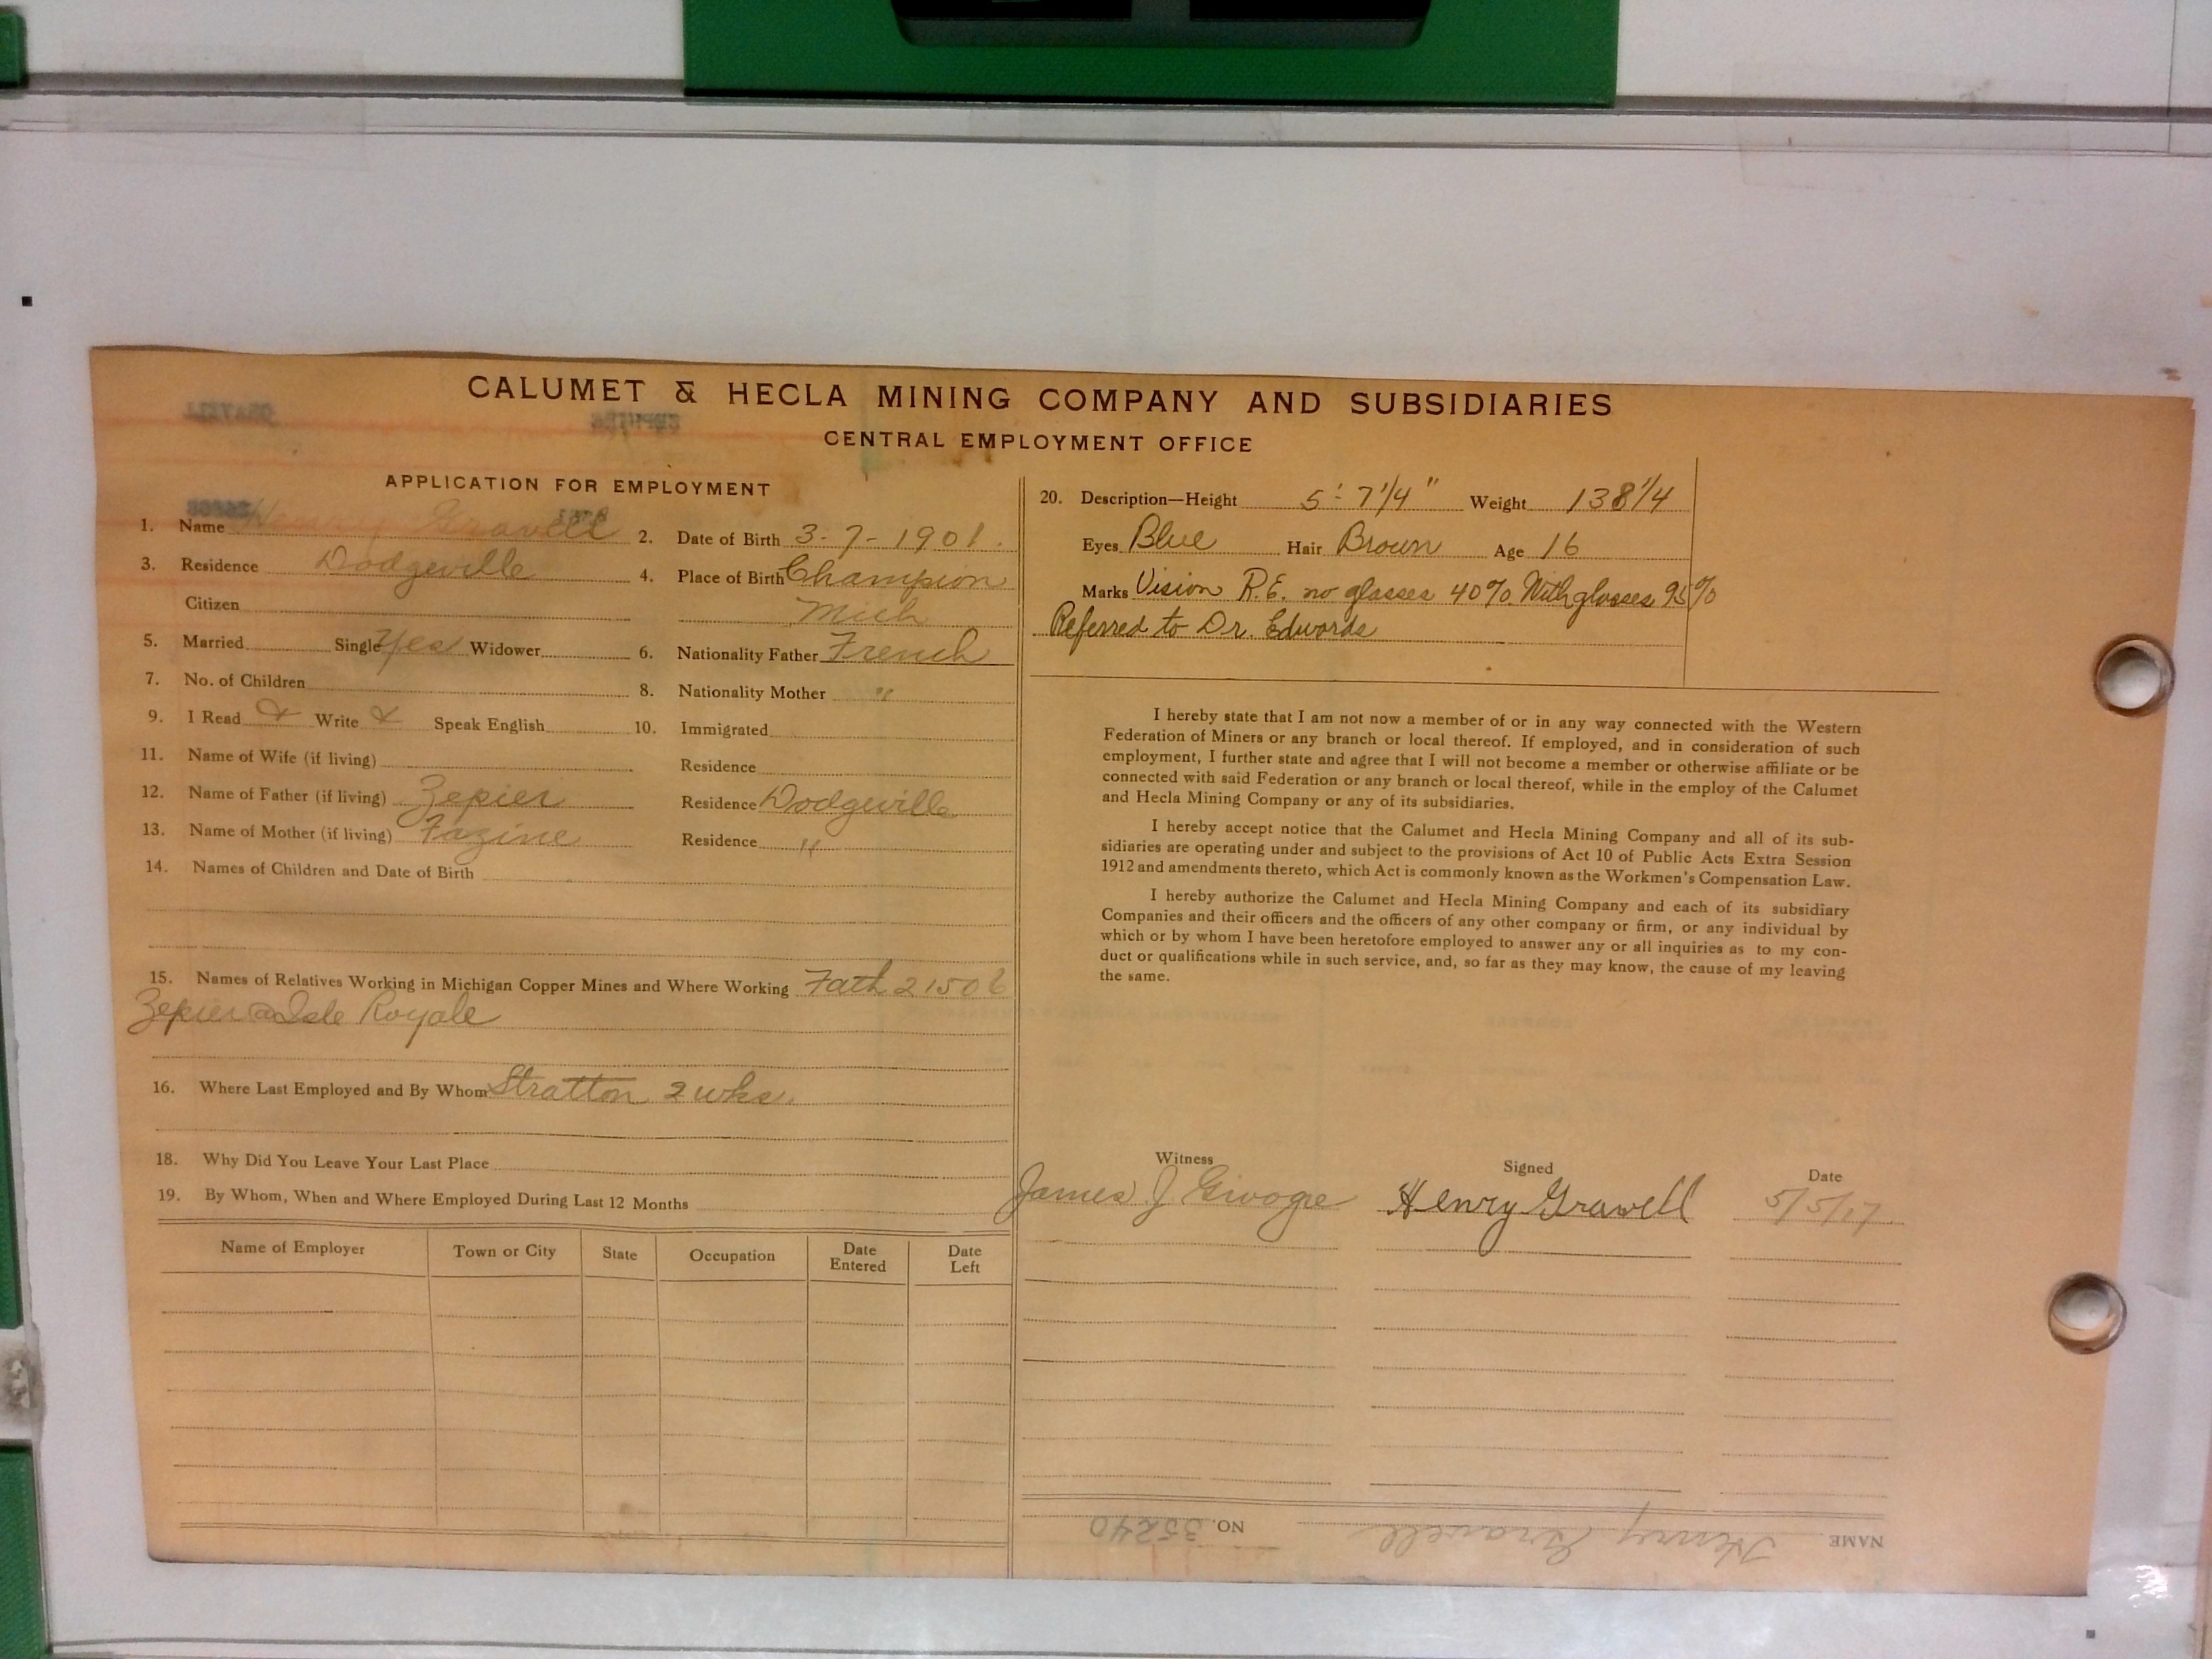 CALUMET & HECLA MINING COMPANY AND SUBSIDIARIES
CENTRAL EMPLOYMENT OFFICE
APPLICATION FOR EMPLOYMENT
1. Name Henry Gravell 2. Date of Birth 3-7-1901.
3. Residence Dodgeville 4. Place of Birth Champion
Citizen Mich
5. Married Single Yes Widower 6. Nationality Father French
7. No. of Children 8. Nationality Mother "
9. I Read Write Speak English 10. Immigrated
11. Name of Wife (if living) Residence
12. Name of Father (if living) Zepier Residence Dodgeville
13. Name of Mother (if living) Fazine Residence "
14. Names of Children and Date of Birth
15. Names of Relatives Working in Michigan Copper Mines and Where Working Fath 21506
Zepier @ Isle Royale
16. Where Last Employed and By Whom Stratton 2 wks.
18. Why Did You Leave Your Last Place
19. By Whom, When and Where Employed During Last 12 Months
Name of Employer Town or City State Occupation Date Entered Date Left
20. Description—Height 5' 7 1/4" Weight 138 1/4
Eyes Blue Hair Brown Age 16
Marks Vision R.E. no glasses 40% With glasses 95%
Referred to Dr. Edwards
I hereby state that I am not now a member of or in any way connected with the Western
Federation of Miners or any branch or local thereof. If employed, and in consideration of such
employment, I further state and agree that I will not become a member or otherwise affiliate or be
connected with said Federation or any branch or local thereof, while in the employ of the Calumet
and Hecla Mining Company or any of its subsidiaries.
I hereby accept notice that the Calumet and Hecla Mining Company and all of its sub-
sidiaries are operating under and subject to the provisions of Act 10 of Public Acts Extra Session
1912 and amendments thereto, which Act is commonly known as the Workmen's Compensation Law.
I hereby authorize the Calumet and Hecla Mining Company and each of its subsidiary
Companies and their officers and the officers of any other company or firm, or any individual by
which or by whom I have been heretofore employed to answer any or all inquiries as to my con-
duct or qualifications while in such service, and, so far as they may know, the cause of my leaving
the same.
Witness Signed Date
James J. Henry Gravell 5/5/17
NAME Henry Gravell NO. 35240